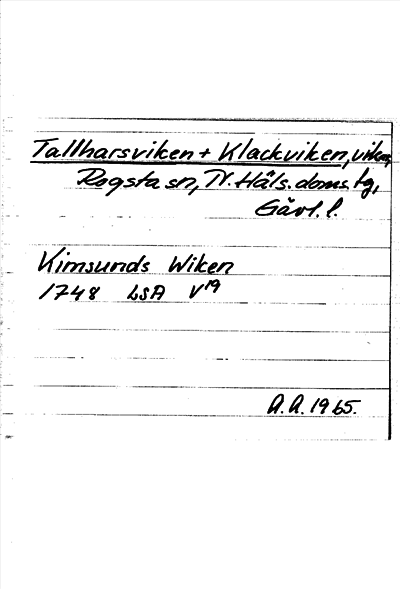 Tallharsviken + Klackviken, vikar,
Rogsta sn, N. Häls. doms. tg,
Gävl. l.
Kimsunds Wiken
1748 LSA V19
A.A. 1965.